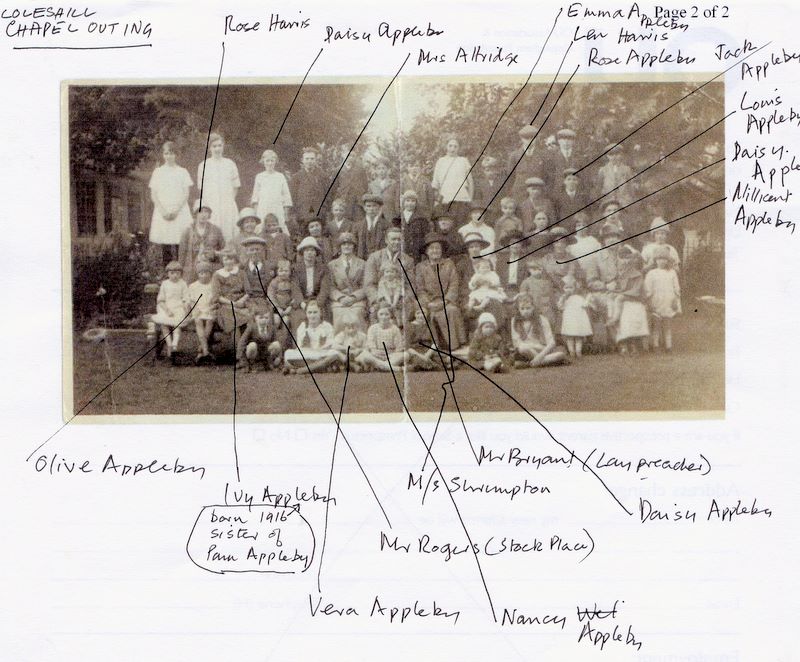 COLESHILL
CHAPEL OUTING
Page 2 of 2
Rose Harris
Daisy Appleby
Mrs Aldridge
Emma Appleby
Len Harris
Rose Appleby
Jack
Appleby
Louis
Appleby
Daisy.
Apple
Millicent
Appleby
Olive Appleby
Ivy Appleby
born 1916
sister of
Pam Appleby
Mr Bryant (Lay preacher)
M/s Shrumpton
Daisy Appleby
Mr Rogers (Stock Place)
Vera Appleby
Nancy
Appleby
Address change